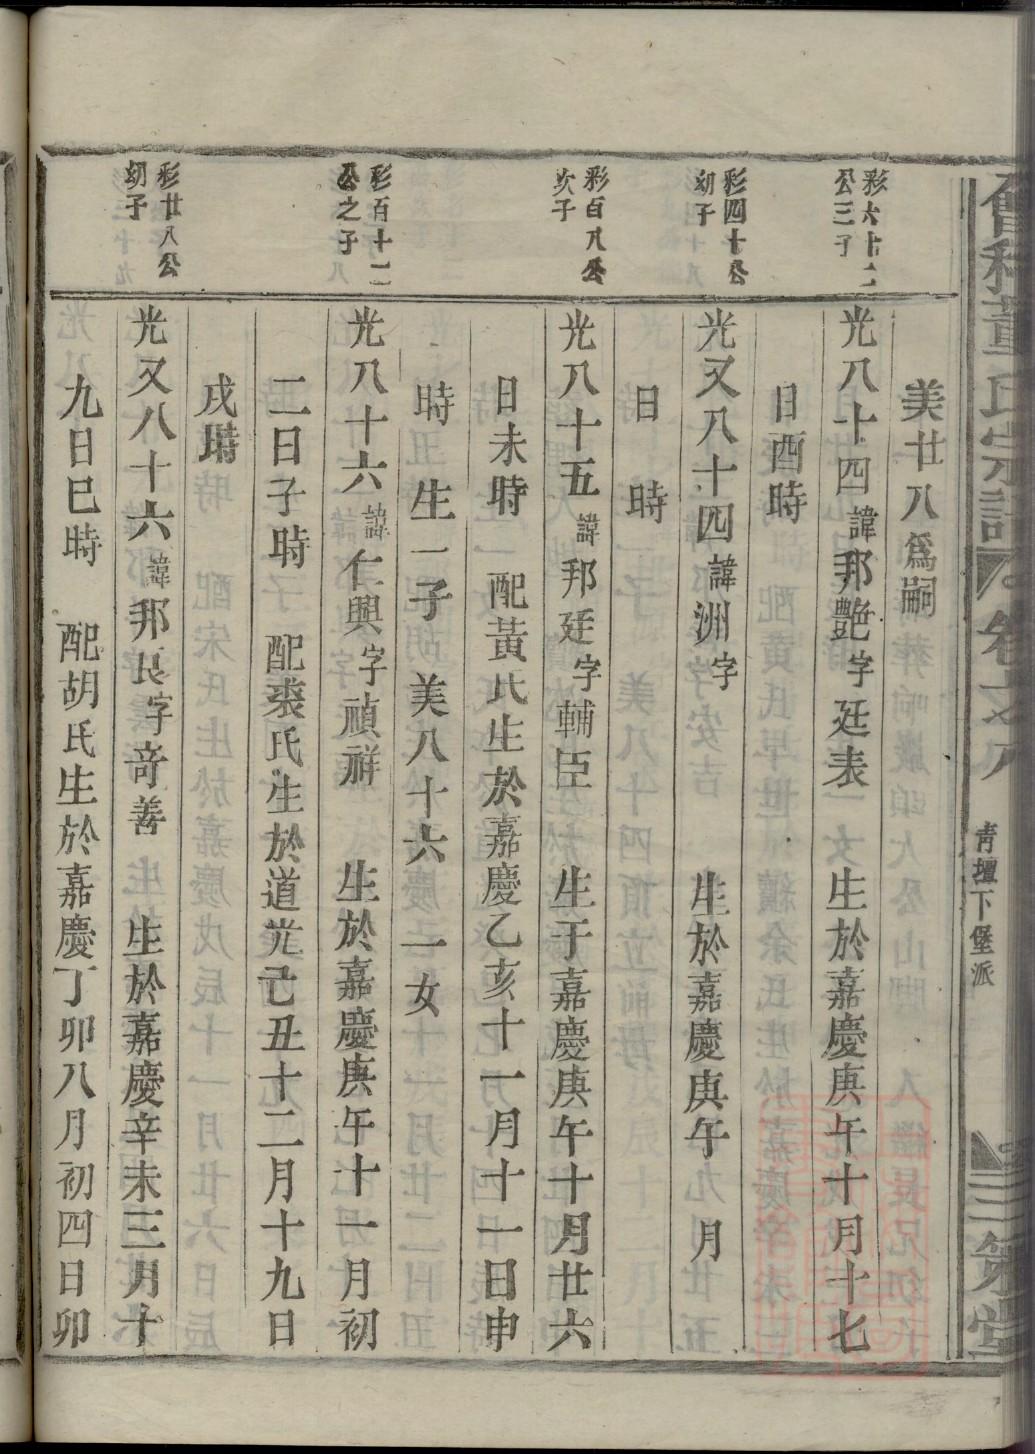 會稽董氏宗譜 卷之八 青壇下堡派 三策堂
美廿八為嗣
彩六十二公三子
光八十四諱邦艷字廷表 生於嘉慶庚午十月十七
日酉時
彩四十公幼子
光又八十四諱洲字 生於嘉慶庚午 月
日 時
彩百八公次子
光八十五諱邦廷字輔臣 生于嘉慶庚午十月廿六
日未時 配黃氏生於嘉慶乙亥十一月十一日申
時 生一子美八十六 一女
彩百十二公之子
光八十六諱仁興字禎祥 生於嘉慶庚午十一月初
二日子時 配裘氏生於道光己丑十二月十九日
戌時
彩廿八公幼子
光又八十六諱邦良字奇善 生於嘉慶辛未三月十
九日巳時 配胡氏生於嘉慶丁卯八月初四日卯